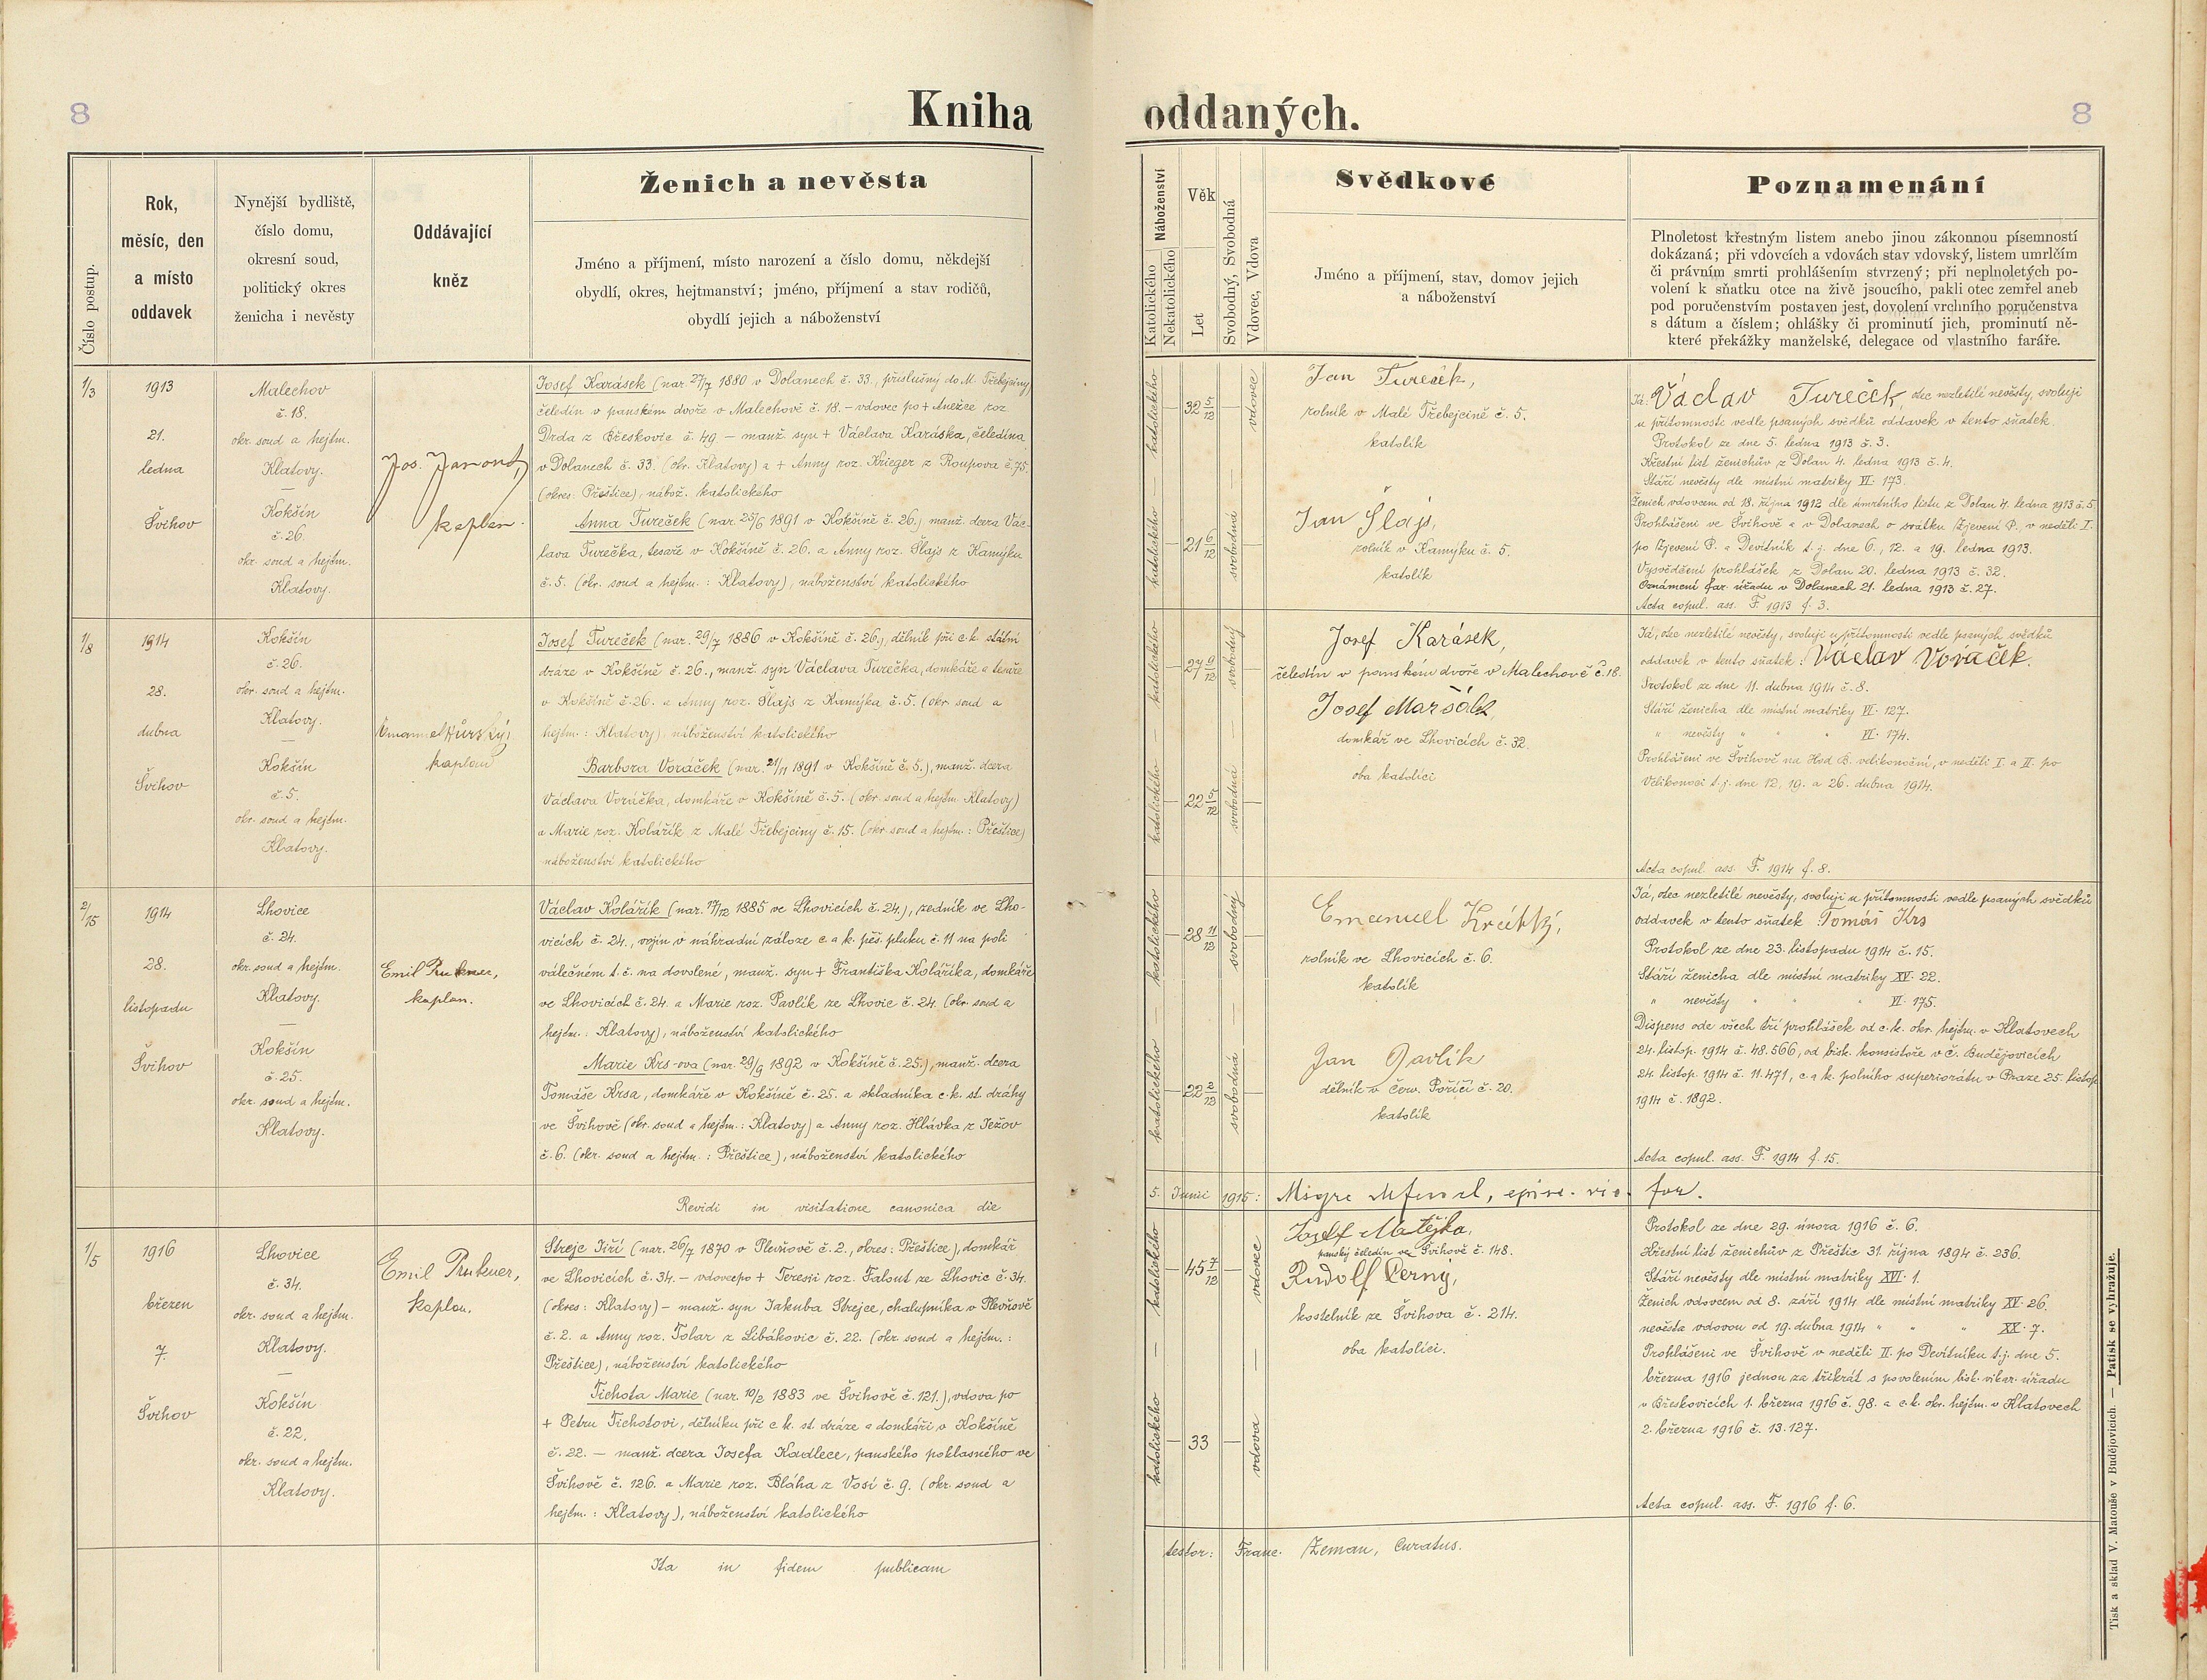 8
Kniha oddaných.
8
Číslo postup.
Rok,
měsíc, den
a místo
oddavek
Nynější bydliště,
číslo domu,
okresní soud,
politický okres
ženicha i nevěsty
Oddávající
kněz
Ženich a nevěsta
Jméno a příjmení, místo narození a číslo domu, někdejší
obydlí, okres, hejtmanství; jméno, příjmení a stav rodičů,
obydlí jejich a náboženství
Náboženství
Katolického
Nekatolického
Věk
Let
Svobodný, Svobodná
Vdovec, Vdova
Svědkové
Jméno a příjmení, stav, domov jejich
a náboženství
Poznamenání
Plnoletost křestným listem anebo jinou zákonnou písemností
dokázaná; při vdovcích a vdovách stav vdovský, listem umrlčím
či právním smrti prohlášením stvrzený; při neplnoletých po-
volení k sňatku otce na živě jsoucího, pakli otec zemřel aneb
pod poručenstvím postaven jest, dovolení vrchního poručenstva
s dátum a číslem; ohlášky či prominutí jich, prominutí ně-
které překážky manželské, delegace od vlastního faráře.
1/3
1913
21.
ledna
Švihov
Malechov
č. 18.
okr. soud a hejtm.
Klatovy.
—
Kokšín
č. 26.
okr. soud a hejtm.
Klatovy.
Jos.
kaplan.
Josef Karásek (nar. 27/7 1880 v Dolanech č. 33., příslušný do M. Třebejciny)
čeledín v panském dvoře v Malechově č. 18. – vdovec po + Anežce roz
Drda z Břeskovic č. 49 — manž. syn + Václava Karáska, čeledína
v Dolanech č. 33. (okr. Klatovy) a + Anny roz. Krieger z Roupova č. 75.
(okres: Přeštice), nábož. katolického
Anna Tureček (nar. 25/6 1891 v Kokšíně č. 26.) manž. dcera Vác-
lava Turečka, tesaře v Kokšíně č. 26. a Anny roz. Šlajs z Kamýku
č. 5. (okr. soud a hejtm.: Klatovy), náboženství katolického
katolického — katolického
32 5/12
21 6/12
vdovec
svobodná
Jan Tureček,
rolník v Malé Třebejcině č. 5.
katolík
Jan Šlajs,
rolník v Kamýku č. 5.
katolík
Já: Václav Tureček, otec nezletilé nevěsty, svoluji
u přítomnosti vedle psaných svědků oddavek v tento sňatek.
Protokol ze dne 5. ledna 1913 č. 3.
Křestní list ženichův z Dolan 4. ledna 1913 č. 4.
Stáří nevěsty dle místní matriky VI. 173.
Ženich vdovcem od 18. října 1912 dle úmrtního listu z Dolan 4. ledna 1913 č. 5.
Prohlášeni ve Švihově a v Dolanech o svátku Zjevení P., v neděli I.
po Zjevení P. a Devítník t. j. dne 6., 12. a 19. ledna 1913.
Vysvědčení prohlášek z Dolan 20. ledna 1913 č. 32.
Oznámení far. úřadu v Dolanech 21. ledna 1913 č. 27.
Acta copul. ass. F. 1913 f. 3.
1/8
1914
28.
dubna
Švihov
Kokšín
č. 26.
okr. soud a hejtm.
Klatovy.
—
Kokšín
č. 5.
okr. soud a hejtm.
Klatovy.
Emanuel
kaplan
Josef Tureček (nar. 29/7 1886 v Kokšíně č. 26.), dělník při c. k. státní
dráze v Kokšíně č. 26., manž. syn Václava Turečka, domkáře a tesaře
v Kokšíně č. 26. a Anny roz. Šlajs z Kamýka č. 5. (okr. soud a
hejtm.: Klatovy), náboženství katolického
Barbora Voráček (nar. 21/11 1891 v Kokšíně č. 5.), manž. dcera
Václava Voráčka, domkáře v Kokšíně č. 5. (okr. soud a hejtm. Klatovy)
a Marie roz. Kolářík z Malé Třebejciny č. 15. (okr. soud a hejtm.: Přeštice)
náboženství katolického
katolického — katolického
27 9/12
22 5/12
svobodný
svobodná
Josef Karásek,
čeledín v panském dvoře v Malechově č. 18.
Josef Maršálek
domkář ve Lhovicích č. 32.
oba katolíci
Já, otec nezletilé nevěsty, svoluji u přítomnosti vedle psaných svědků
oddavek v tento sňatek: Václav Voráček.
Protokol ze dne 11. dubna 1914 č. 8.
Stáří ženicha dle místní matriky VI. 127.
" nevěsty " " " VI. 174.
Prohlášeni ve Švihově na Hod B. velikonoční, v neděli I. a II. po
Velikonoci t. j. dne 12., 19. a 26. dubna 1914.
Acta copul. ass. F. 1914 f. 8.
2/15
1914
28.
listopadu
Švihov
Lhovice
č. 24.
okr. soud a hejtm.
Klatovy.
—
Kokšín
č. 25.
okr. soud a hejtm.
Klatovy.
Emil Prukner,
kaplan.
Václav Kolářík (nar. 17/12 1885 ve Lhovicích č. 24.), zedník ve Lho-
vicích č. 24., vojín v náhradní záloze c. a k. pěš. pluku č. 11 na poli
válečném t. č. na dovolené, manž. syn + Františka Koláříka, domkáře
ve Lhovicích č. 24. a Marie roz. Pavlík ze Lhovic č. 24. (okr. soud a
hejtm.: Klatovy), náboženství katolického
Marie Krs-ova (nar. 29/9 1892 v Kokšíně č. 25.), manž. dcera
Tomáše Krsa, domkáře v Kokšíně č. 25. a skladníka c. k. st. dráhy
ve Švihově (okr. soud a hejtm.: Klatovy) a Anny roz. Hlávka z Ježov
č. 6. (okr. soud a hejtm.: Přeštice), náboženství katolického
katolického — katolického
28 11/12
22 2/12
svobodný
svobodná
Emanuel Krátký,
rolník ve Lhovicích č. 6.
katolík
Jan Pavlík
dělník v Červ. Poříčí č. 20.
katolík
Já, otec nezletilé nevěsty, svoluji u přítomnosti vedle psaných svědků
oddavek v tento sňatek: Tomáš Krs
Protokol ze dne 23. listopadu 1914 č. 15.
Stáří ženicha dle místní matriky XV. 22.
" nevěsty " " " VI. 175.
Dispens ode všech tří prohlášek od c. k. okr. hejtm. v Klatovech
24. listop. 1914 č. 48.566, od bisk. konsistoře v Č. Budějovicích
24. listop. 1914 č. 11.471, c. a k. polního superiorátu v Praze 25. listop.
1914 č. 1892.
Acta copul. ass. F. 1914 f. 15.
Revidi in visitatione canonica die 5. Junii 1915: episc. vic. for.
1/5
1916
březen
7.
Švihov
Lhovice
č. 34.
okr. soud a hejtm.
Klatovy.
—
Kokšín
č. 22.
okr. soud a hejtm.
Klatovy.
Emil Prukner,
kaplan.
Strejc Jiří (nar. 26/7 1870 v Plevňově č. 2., okres: Přeštice), domkář
ve Lhovicích č. 34. – vdovec po + Teresii roz. Falout ze Lhovic č. 34.
(okres: Klatovy) – manž. syn Jakuba Strejce, chalupníka v Plevňově
č. 2. a Anny roz. Tolar z Libákovic č. 22. (okr. soud a hejtm.:
Přeštice), náboženství katolického
Tichota Marie (nar. 10/2 1883 ve Švihově č. 121.), vdova po
+ Petru Tichotovi, dělníku při c. k. st. dráze a domkáři v Kokšíně
č. 22. — manž. dcera Josefa Kadlece, panského poklasného ve
Švihově č. 126. a Marie roz. Bláha z Vosí č. 9. (okr. soud a
hejtm.: Klatovy), náboženství katolického
katolického — katolického
45 7/12
33
vdovec
vdova
Josef Matějka,
panský čeledín ve Švihově č. 148.
Rudolf Černý,
kostelník ze Švihova č. 214.
oba katolíci.
Protokol ze dne 29. února 1916 č. 6.
Křestní list ženichův z Přeštic 31. října 1894 č. 236.
Stáří nevěsty dle místní matriky XVI. 1.
Ženich vdovcem od 8. září 1914 dle místní matriky XV. 26.
nevěsta vdovou od 19. dubna 1914 " " " XX. 7.
Prohlášeni ve Švihově v neděli II. po Devítníku t. j. dne 5.
března 1916 jednou za třikrát s povolením bisk. vikar. úřadu
v Břeskovicích 1. března 1916 č. 98. a c. k. okr. hejtm. v Klatovech
2. března 1916 č. 13.127.
Acta copul. ass. F. 1916 f. 6.
Ita in fidem publicam testor: Franc. Zeman, Curatus.
Tisk a sklad V. Matouše v Budějovicích. — Patisk se vyhražuje.